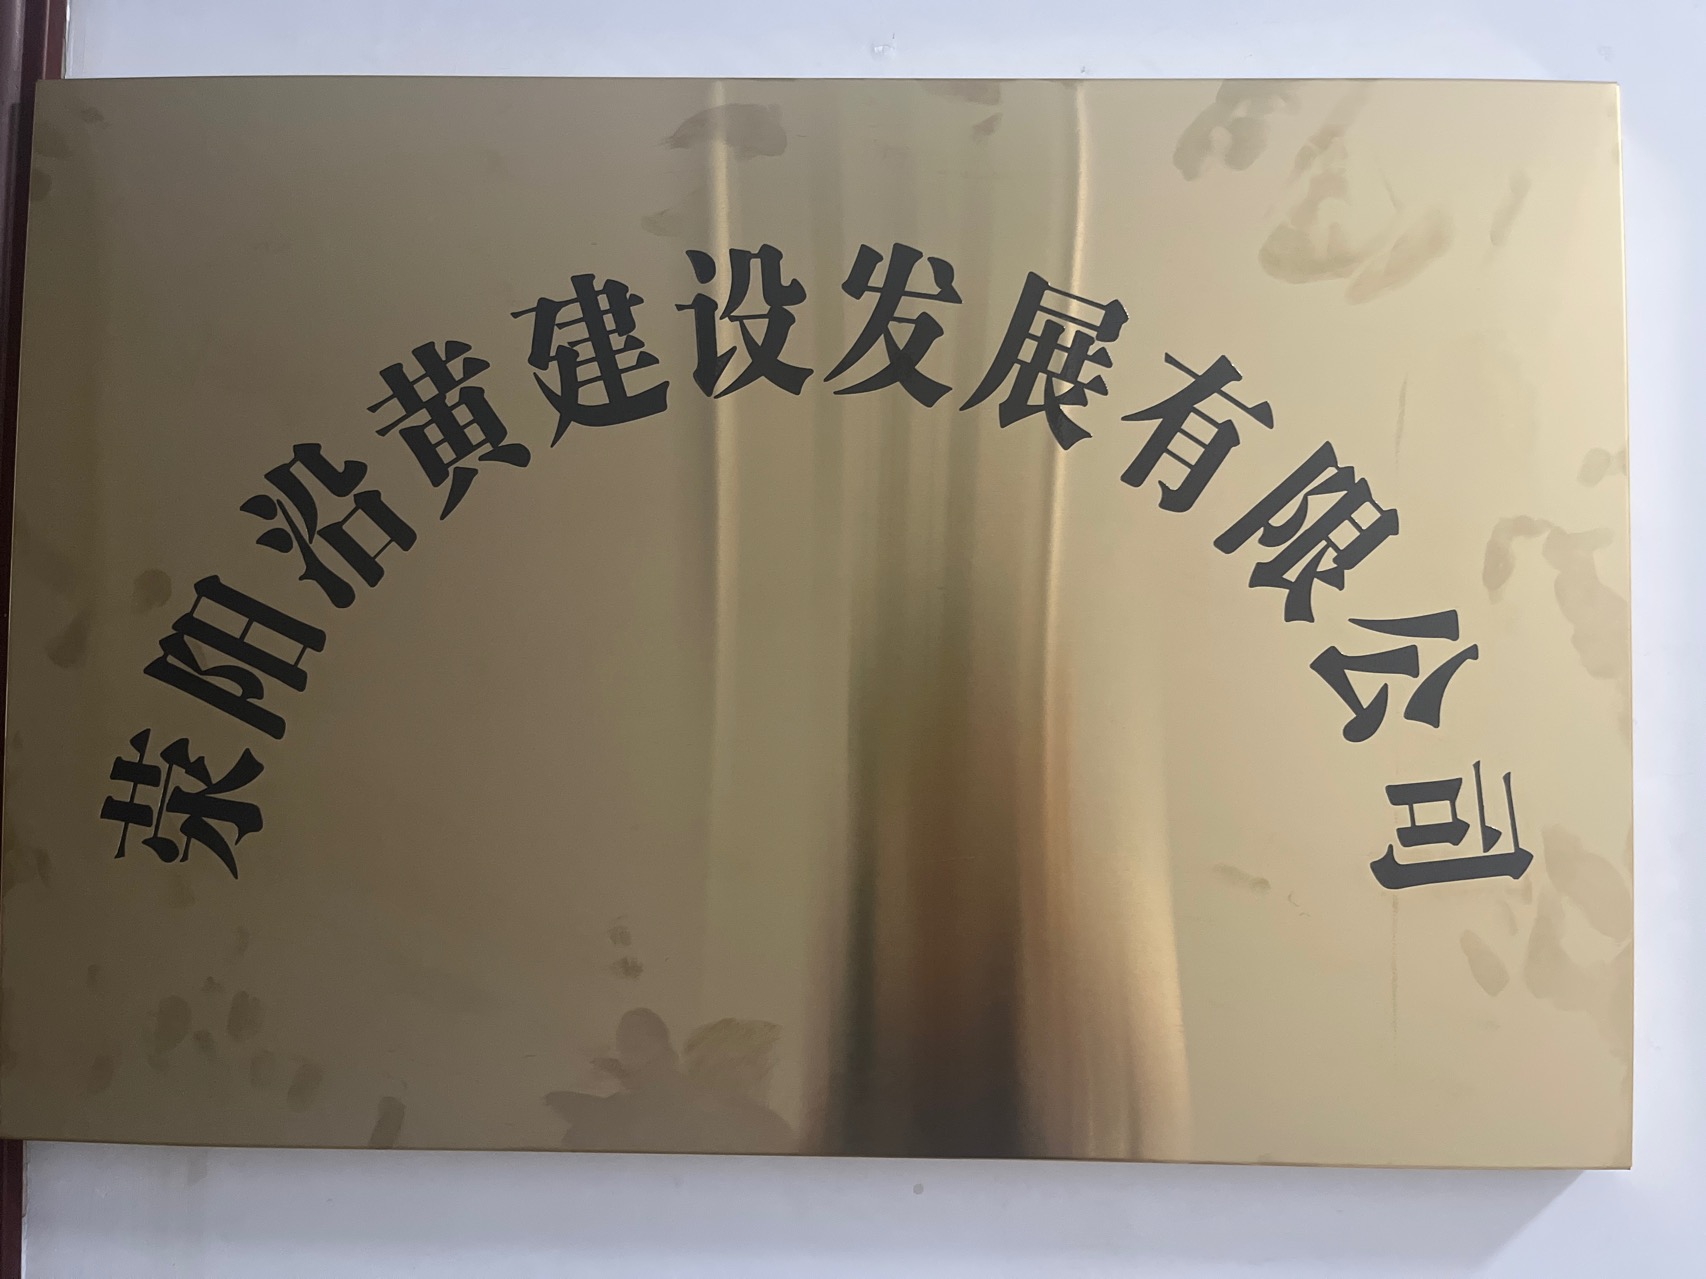 荥阳沿黄建设发展有限公司